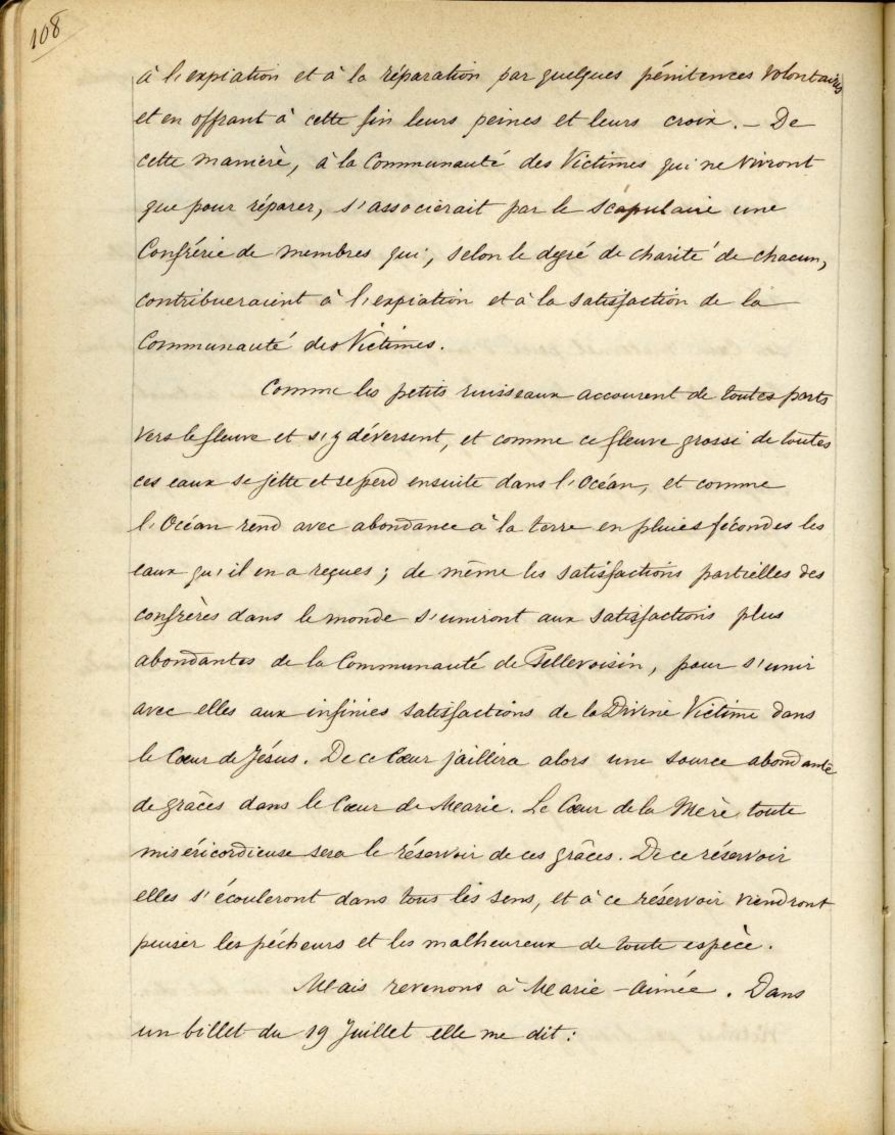 108
à l'expiation et à la réparation par quelques pénitences volontaires
et en offrant à cette fin leurs peines et leurs croix. — De
cette manière, à la Communauté des Victimes qui ne vivront
que pour réparer, s'associerait par le scapulaire une
Confrérie de membres qui, selon le degré de charité de chacun,
contribueraient à l'expiation et à la satisfaction de la
Communauté des Victimes.
Comme les petits ruisseaux accourent de toutes parts
vers le fleuve et s'y déversent, et comme ce fleuve grossi de toutes
ces eaux se jette et se perd ensuite dans l'Océan, et comme
l'Océan rend avec abondance à la terre en pluies fécondes les
eaux qu'il en a reçues ; de même les satisfactions partielles des
confrères dans le monde s'uniront aux satisfactions plus
abondantes de la Communauté de Pellevoisin, pour s'unir
avec elles aux infinies satisfactions de la Divine Victime dans
le Cœur de Jésus. De ce Cœur jaillira alors une source abondante
de grâces dans le Cœur de Marie. Le Cœur de la Mère toute
miséricordieuse sera le réservoir de ces grâces. De ce réservoir
elles s'écouleront dans tous les sens, et à ce réservoir viendront
puiser les pécheurs et les malheureux de toute espèce.
Mais revenons à Marie-Aimée. Dans
un billet du 19 Juillet elle me dit :